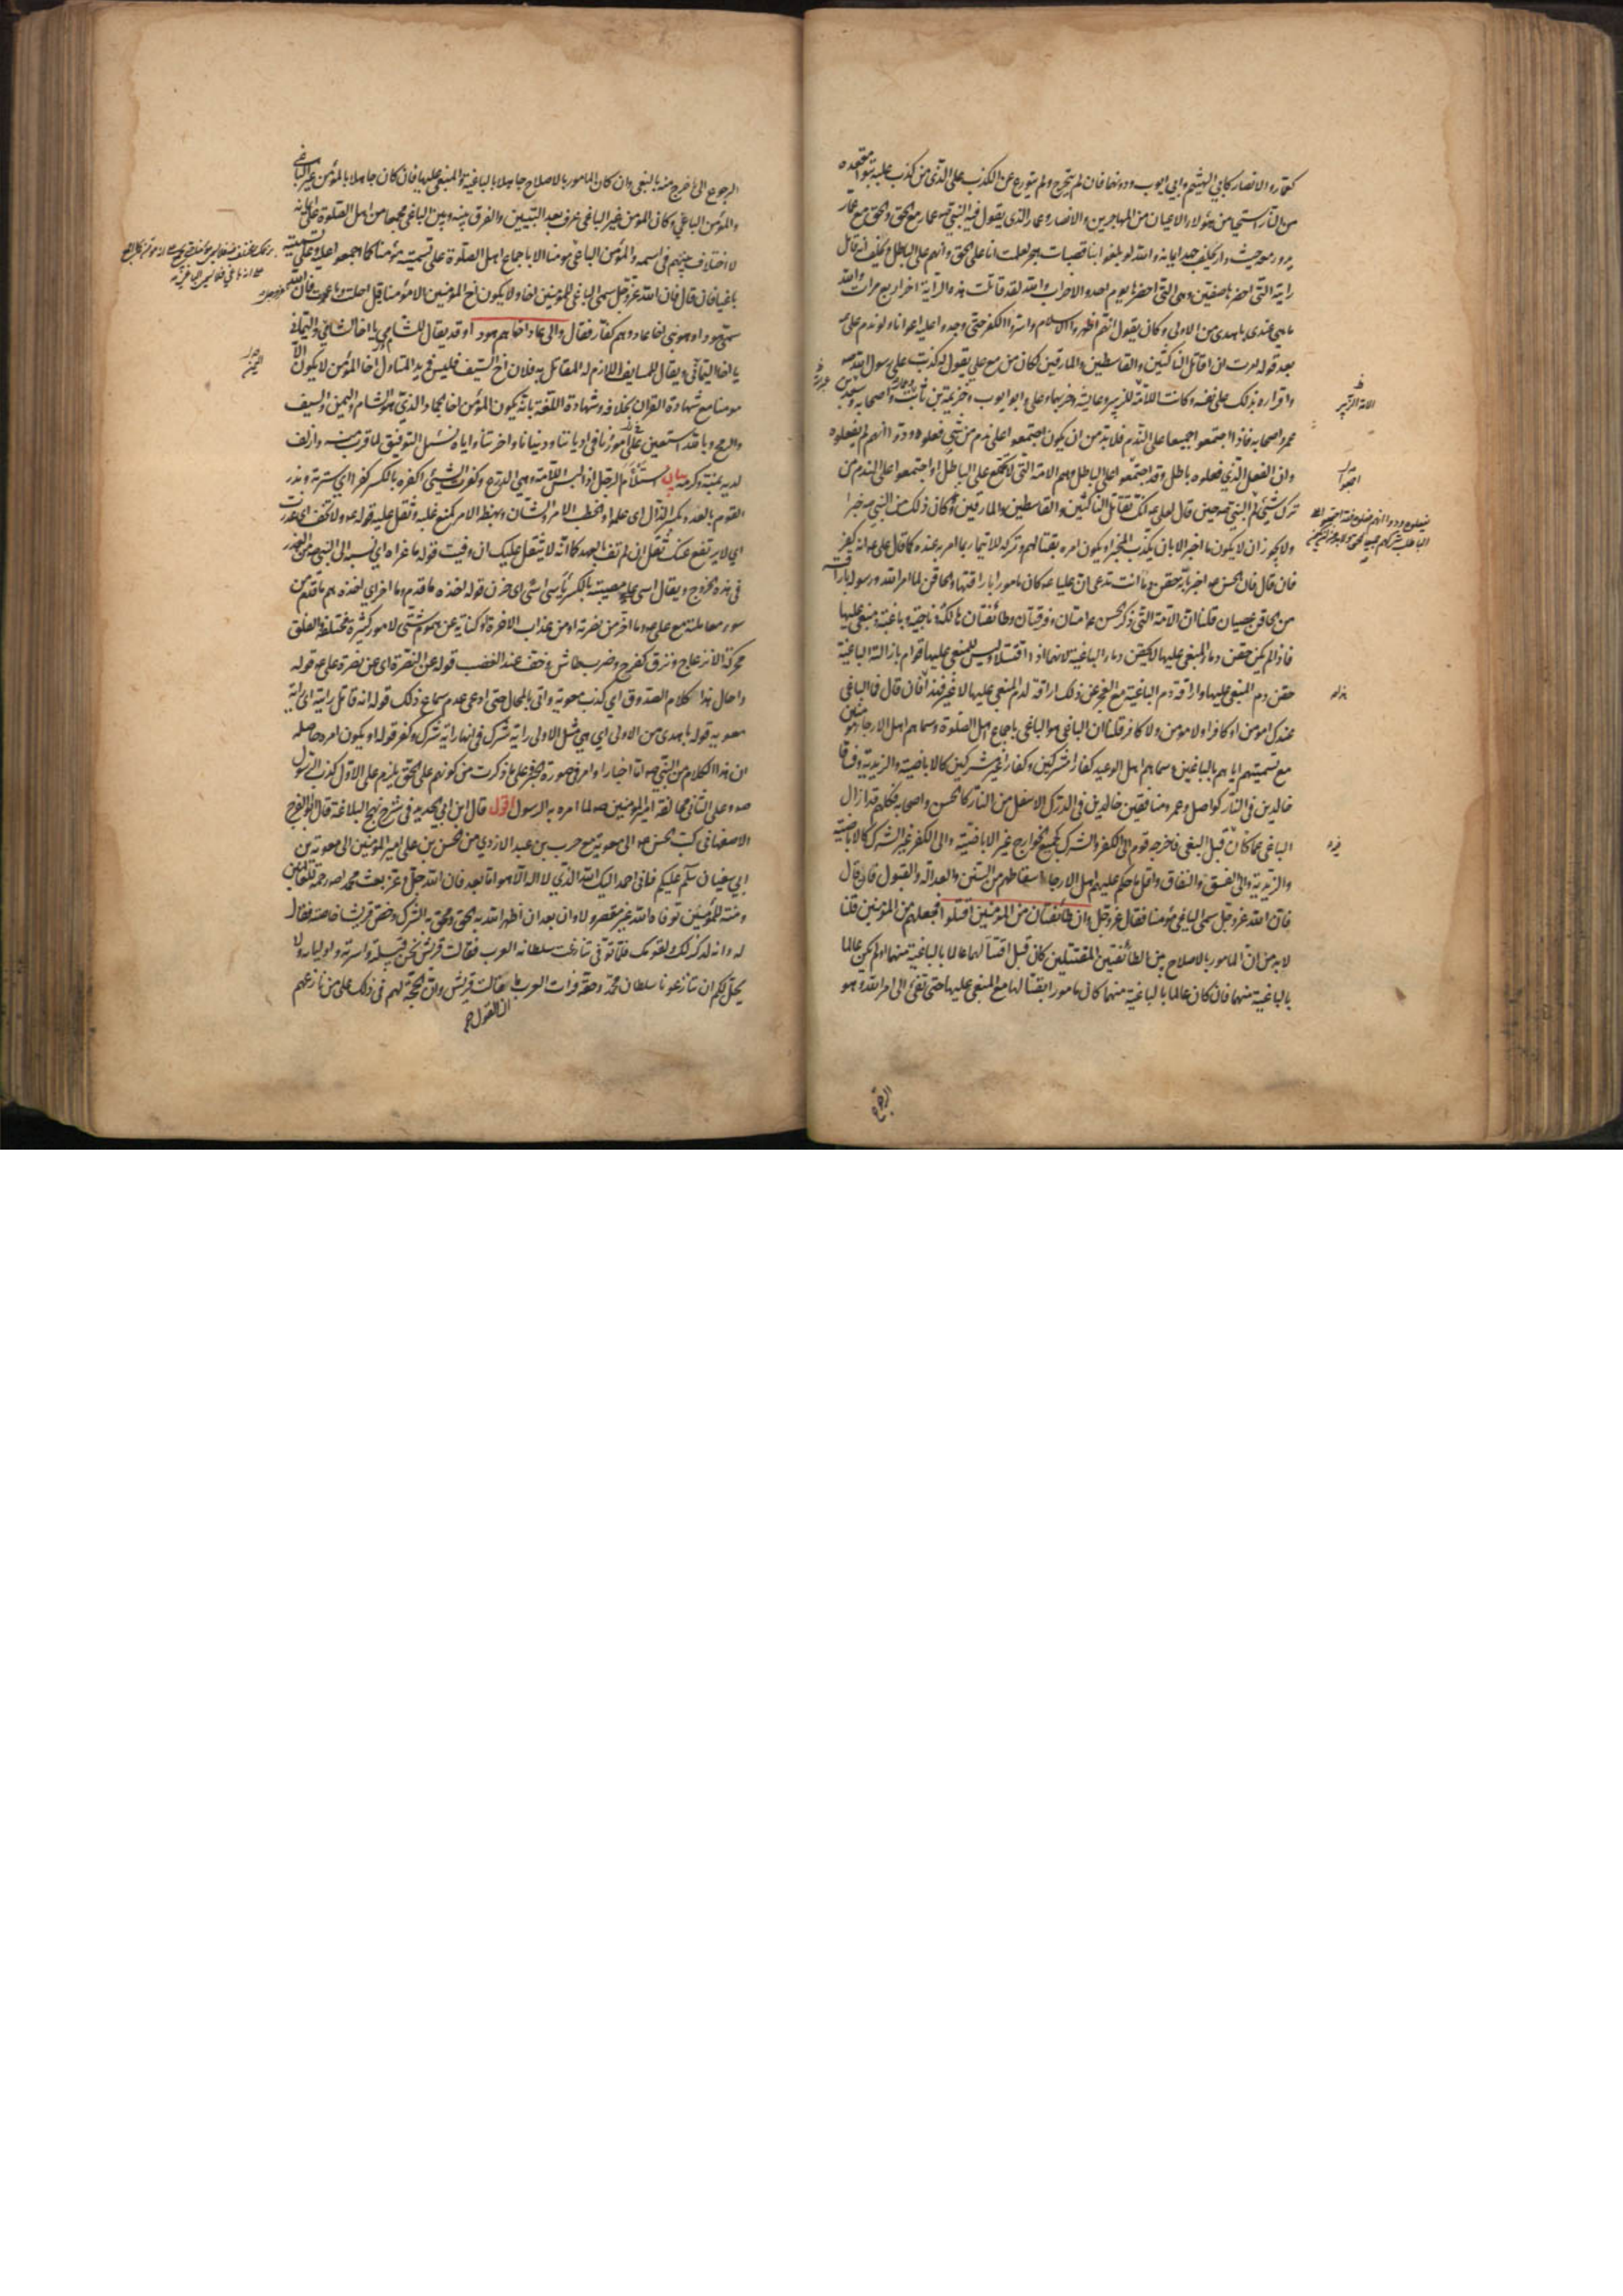 كعمار والانصار كابي الهيثم وابي ايوب ودونهما فان لم يتحرج ولم يتورع عن الكذب على الذي من كذب عليه تبوا مقعده
من النار استحيا من هؤلاء الاعيان من المهاجرين والانصار وعمار الذي يقول فيه النبي ص عمار مع الحق والحق مع عمار
يدور معه حيث دار يحلف جهد ايمانه والله لو بلغوا بنا قصبات هجر لعلمت انا على الحق وانهم على الباطل ويحلف انه قاتل
رايته التي احضرها صفين وهي التي احضرها يوم احد والاحزاب والله لقد قاتلت هذه الراية اخرا اربع مرات والله
ما هي عندي باهدى من الاولى وكان يقول انهم اظهروا الاسلام واسروا الكفر حتى وجدوا عليه اعوانا ولو ندم علي ع
بعد قوله امرت ان اقاتل الناكثين والقاسطين والمارقين لكان من مع علي يقول له كذبت على رسول الله ص
واقراره بذلك على نفسه وكانت الامة للزبير وعايشة وحزبهما وعلي وابو ايوب وخزيمة بن ثابت وعمار واصحابه وسعد وابن
عمر واصحابه فاذا اجتمعوا جميعا على الندم فلا بد من ان يكون اجتمعوا على ندم من شي فعلوه ودوا انهم لم يفعلوه
وان الفعل الذي فعلوه باطل وقد اجتمعوا على الباطل وهم الامة التي لا تجتمع على الباطل او اجتمعوا على الندم من
ترك شيء لم
ولا يجوز ان لا يكون ما اخبر الا بان يكذب المخبر او يكون امره بقتالهم وتركه للايتمار بما امر به عنده كما قال علي ع انه كفر
فان قال فان الحسن ع اخبر بانه حقن دما انت تدعي ان عليا ع كان مامورا باراقتها والحاقن لما امر الله ورسوله باراقته
من الحاقن عصيان قلنا ان الامة التي ذكر الحسن ع امتان وفرقتان وطائفتان هالكة وناجية وباغية ومبغي عليها
فاذا لم يكن حقن دماء المبغي عليها الا بحقن دماء الباغية لانهما اذا اقتتلا وليس للمبغي عليها قوام بازالة الباغية
حقن دم المبغي عليها واراقة دم الباغية مع العجز عن ذلك اراقة لدم المبغي عليها لا غير فهذا فان قال فما الباغي
عندك امؤمن او كافر او لا مؤمن ولا كافر قلنا ان الباغي هو الباغي باجماع اهل الصلوة وسماهم اهل الارجاء مؤمنين
مع تسميتهم اياهم بالباغين وسماهم اهل الوعيد كفارا مشركين وكفارا غير مشركين كالاباضية والزيدية وفساقا
خالدين في النار كواصل وعمرو ومنافقين خالدين في الدرك الاسفل من النار كالحسن واصحابه فكلهم قد ازال
الباغي عما كان قبل البغي فاخرجه قوم الى الكفر والشرك كجميع الخوارج غير الاباضية والى الكفر غير الشرك كالاباضية
والزيدية والى الفسق والنفاق واقل ما حكم عليهم اهل الارجاء اسقاطهم من السنن والعدالة والقبول فان قال
فان الله عز وجل سمى الباغي مؤمنا فقال عز وجل وان طائفتان من المؤمنين اقتتلوا فجعلهم من المؤمنين قلنا
لا بد من ان المامور بالاصلاح بين الطائفتين المقتتلين كان قبل اقتتالهما عالما بالباغية منهما او لم يكن عالما
بالباغية منهما فان كان عالما بالباغية منهما كان مامورا بقتالها مع المبغي عليها حتى تفيء الى امر الله وهو
الرجوع
الرجوع الى ما خرج منه بالبغي وان كان المامور بالاصلاح جاهلا بالباغية والمبغي عليها فانه كان جاهلا بالمؤمن غير الباغي
والمؤمن الباغي وكان المؤمن غير الباغي عرف بعد التبيين والفرق بينه وبين الباغي مجمعا من اهل الصلوة على ايمانه
لا اختلاف بينهم في اسمه والمؤمن الباغي مؤمنا الا باجماع اهل الصلوة على تسميته مؤمنا كما اجمعوا عليه وعلى تسميته
باغيا فان قال فان الله عز وجل سمى الباغي للمؤمنين اخا ولا يكون اخ المؤمنين الا مؤمنا قيل احلت وباعدت فان الله
سمى هودا وهو نبي اخا عاد وهم كفار فقال والى عاد اخاهم هودا وقد يقال للشامي يا اخا الشام ولليماني
يا اخا اليماني ويقال للمسايف اللازم له المقاتل به فلان اخ السيف فليس في يد المتاول اخا المؤمن لا يكون الا
مؤمنا مع شهادة القران بخلافه وشهادة اللغة بانه يكون المؤمن اخا الجماد الذي هو الشام واليمن والسيف
والرمح وبالله استعين على امورنا في ادياننا ودنيانا واخرتنا واياه نسئل التوفيق لما قرب منه وازلف
لديه بمنه وكرمه بيان استلأم الرجل اذا لبس اللامة وهي الدرع وكفرت الشيء اكفره بالكسر كفرا اي سترته ونذر
القوم بالعدو بكسر الذال اي علموا والخطب الامر والشان وبهظه الامر كمنع غلبه وثقل عليه قوله ع ولا تخف اي غدرت
اي لا يرتفع عنك ثقل ان لم تف بالعهد كما انه لا يثقل عليك ان وفيت قوله ما عزاه اي نسبه الى النبي ص من العذر
في هذه الخروج ويقال اسى على مصيبته بالكسر ياسى اسى اي حزن قوله اخذه ما قدم وما اخر اي اخذه هم ما قدم من
سوء معاملته مع علي ع وما اخر من نصرته او من عذاب الاخرة او كناية عن هموم شتى لامور كثيرة مختلفة والقلق
محركة الانزعاج ونزق كفرح وضرب طاش وخف عند الغضب قوله عن النصرة اي عن نصرة علي ع قوله
واحال هذا كلام الصدوق اي كذب معوية واتى بالمحال حتى ادعى عدم سماع ذلك قوله انه قاتل رايته اي راية
معوية قوله باهدى من الاولى اي هي مثل الاولى راية شرك في انها راية شرك وكفر قوله او يكون امره حاصله
ان هذا الكلام من النبي ص اما اخبار او امر في صورة الخبر على ما ذكرت من كونهم على الحق يلزم على الاول كذب الرسول
ص وعلى الثاني مخالفة امير المؤمنين ص لما امره به الرسول اقول قال ابن ابي الحديد في شرح نهج البلاغة قال ابو الفرج
الاصفهاني كتب الحسن ع الى معوية مع حرب بن عبد الازدي من الحسن بن علي امير المؤمنين الى معوية بن
ابي سفيان سلام عليكم فاني احمد اليك الله الذي لا اله الا هو اما بعد فان الله جل وعز بعث محمدا ص رحمة للعالمين
ومنة للمؤمنين توفاه الله غير مقصر ولا وان بعد ان اظهر الله به الحق ومحق به الشرك وخص قريشا خاصة فقال
له وانه لذكر لك ولقومك فلما توفي تنازعت سلطانه العرب فقالت قريش نحن قبيلته واسرته واولياؤه ولا
يحل لكم ان تنازعونا سلطان محمد وحقه فرات العرب ما قالت قريش وان الحجة لهم في ذلك على من نازعهم
ان القول